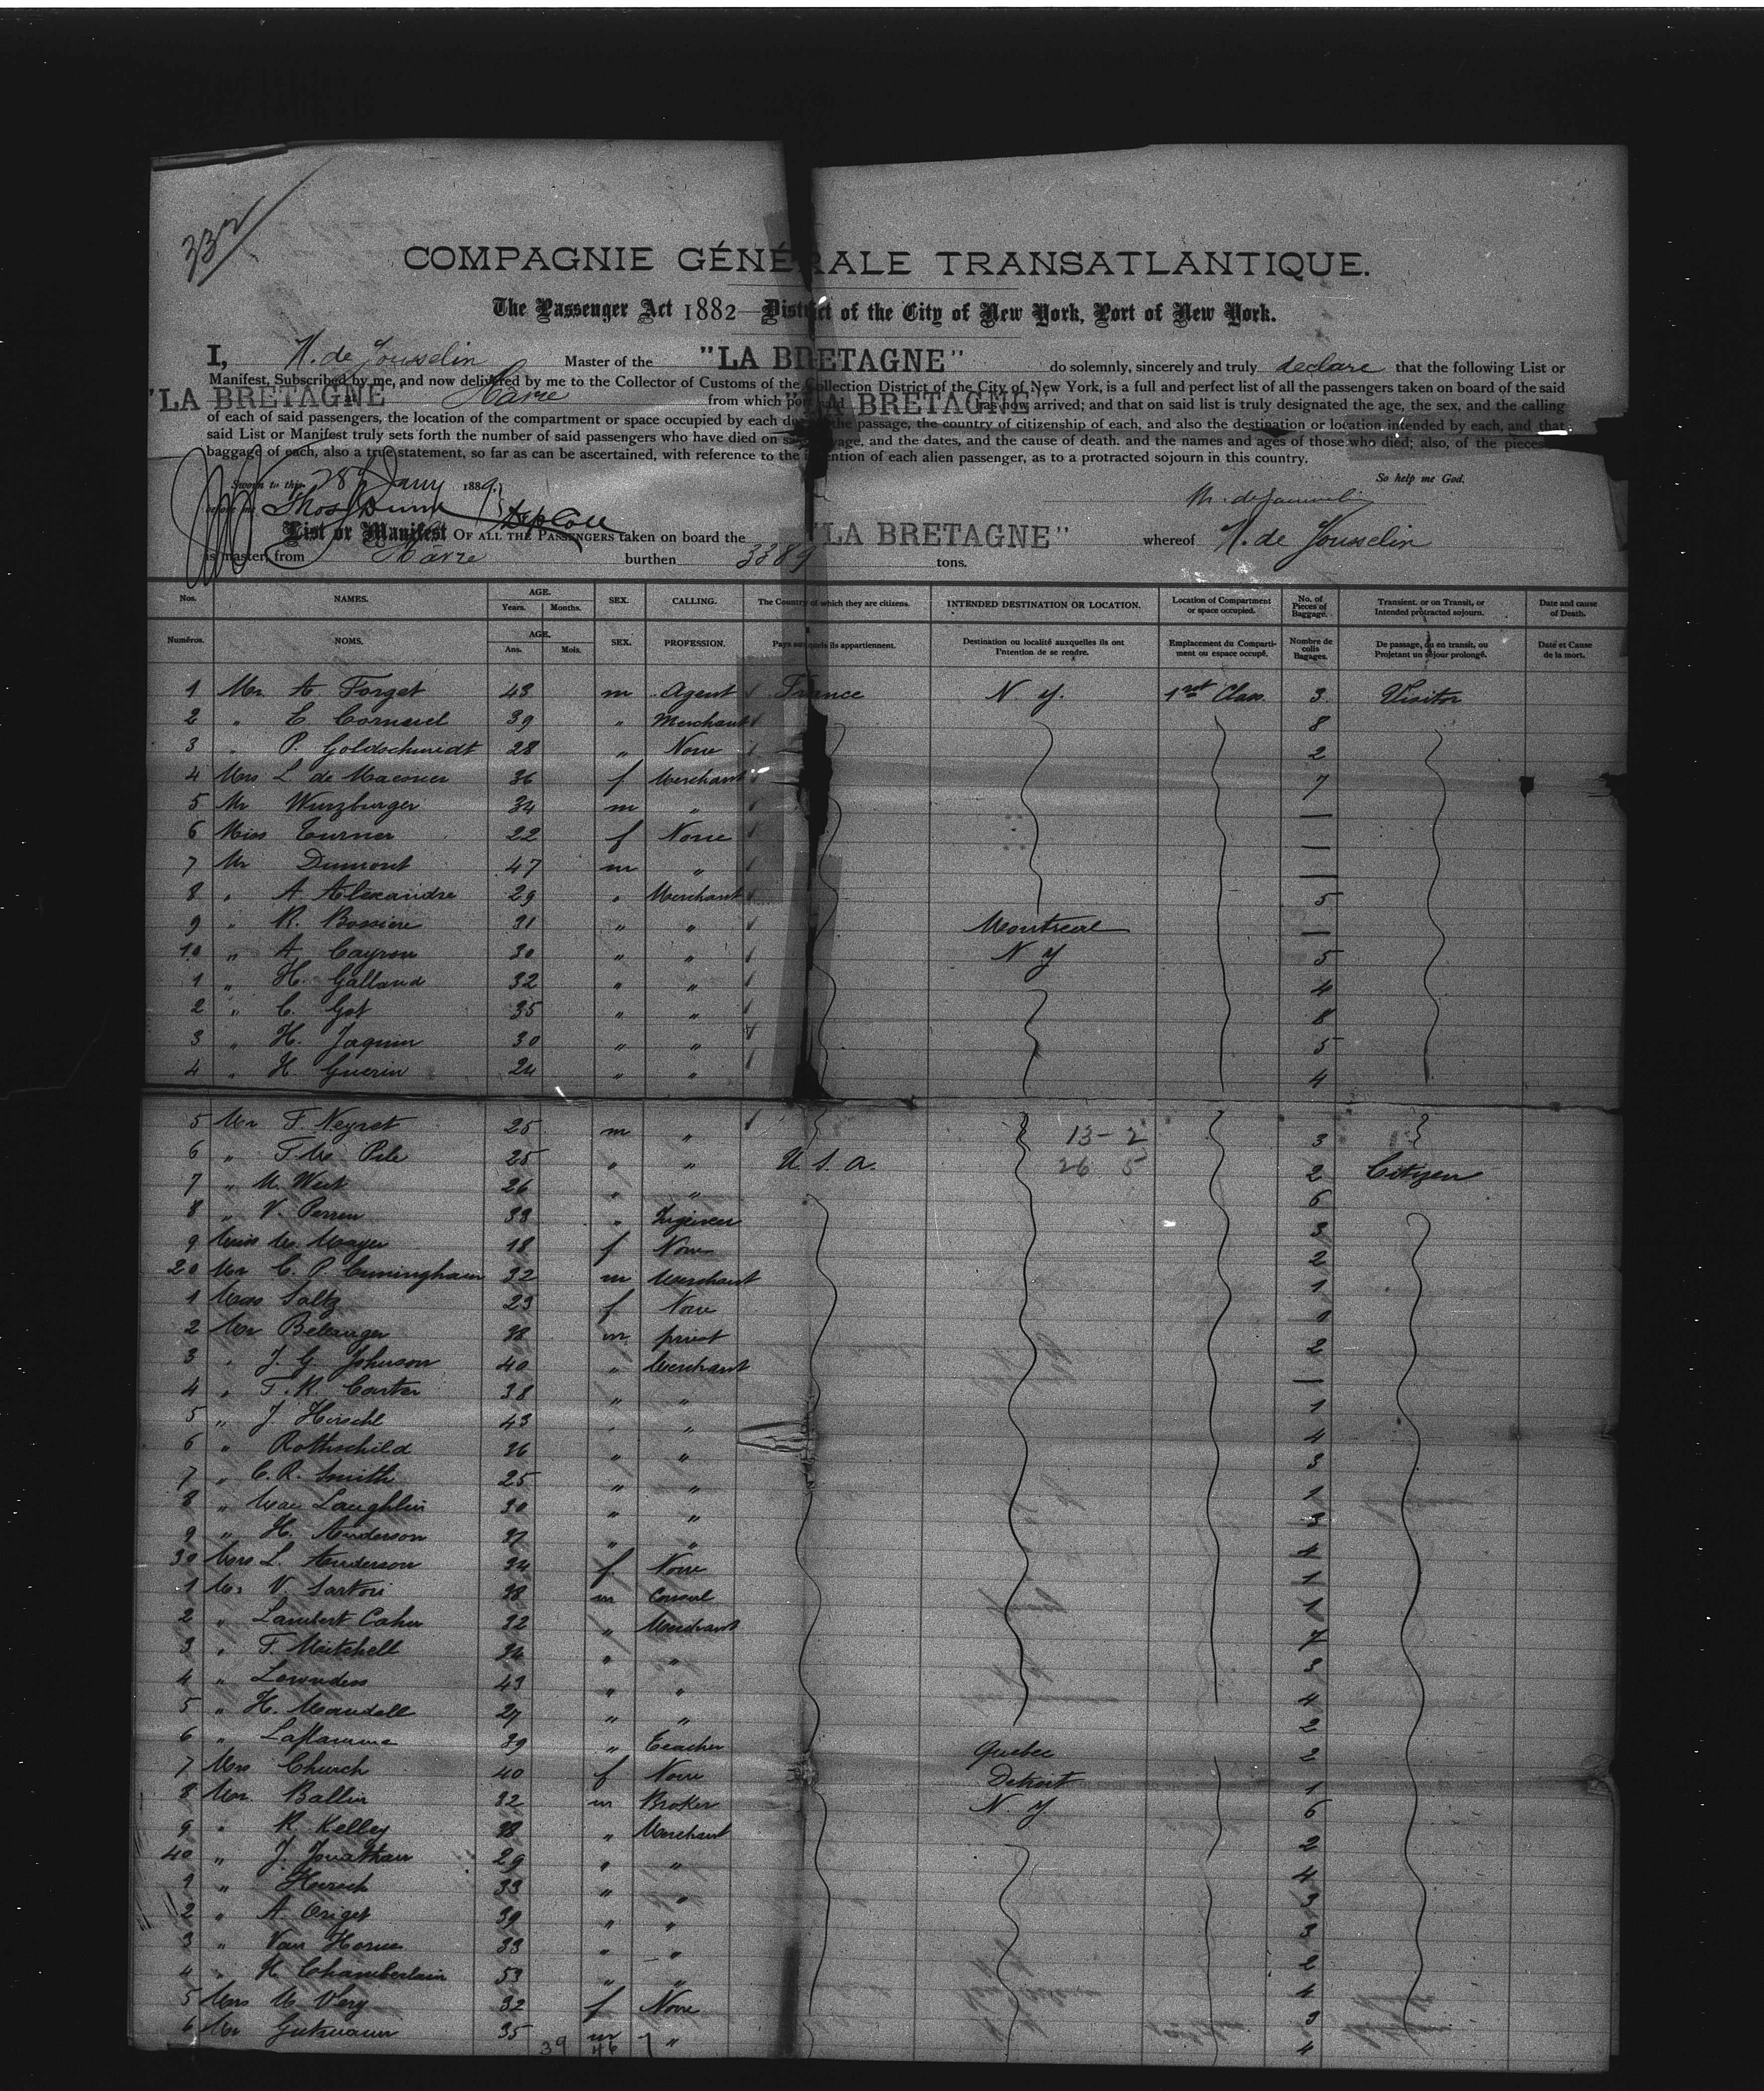 332
COMPAGNIE GÉNÉRALE TRANSATLANTIQUE.
The Passenger Act 1882 District of the City of New York, Port of New York.
I, N. de Jousselin Master of the "LA BRETAGNE" do solemnly, sincerely and truly declare that the following List or
Manifest, Subscribed by me, and now delivered by me to the Collector of Customs of the Collection District of the City of New York, is a full and perfect list of all the passengers taken on board of the said
"LA BRETAGNE Havre from which port said "LA BRETAGNE" has now arrived; and that on said list is truly designated the age, the sex, and the calling
of each of said passengers, the location of the compartment or space occupied by each during the passage, the country of citizenship of each, and also the destination or location intended by each, and that
said List or Manifest truly sets forth the number of said passengers who have died on said voyage, and the dates, and the cause of death. and the names and ages of those who died; also, of the pieces
baggage of each, also a true statement, so far as can be ascertained, with reference to the intention of each alien passenger, as to a protracted sojourn in this country.
Sworn to this 28 Jany 1889 So help me God.
before me Thos Dunn Dep Coll
List or Manifest OF ALL THE PASSENGERS taken on board the "LA BRETAGNE" whereof N. de Jousselin
is master, from Havre burthen 3389 tons.
Nos. NAMES. AGE. Years. Months. SEX. CALLING. The Country of which they are citizens. INTENDED DESTINATION OR LOCATION. Location of Compartment or space occupied. No. of Pieces of Baggage. Transient. or on Transit, or Intended protracted sojourn. Date and cause of Death.
Numéros. NOMS. AGE. Ans. Mois. SEX. PROFESSION. Pays auxquels ils appartiennent. Destination ou localité auxquelles ils ont l'intention de se rendre. Emplacement du Compartiment ou espace occupé. Nombre de colis Bagages. De passage, ou en transit, ou Projetant un séjour prolongé. Date et Cause de la mort.
1 Mr A Forget 43 m Agent France N Y. 1rst Class. 3 Visitor
2 " E. Cornarel 39 " Merchant 8
3 " P. Goldschmidt 28 " None 2
4 Mrs L de Macouer 36 f Merchant 7
5 Mr Wurzburger 34 m " —
6 Miss Turner 22 f None —
7 Mr Dumont 47 m " —
8 " A Alexandre 29 " Merchant 5
9 " R. Bossiere 31 " " Montreal —
10 " A. Cayron 30 " " N Y 5
1 " H. Galland 32 " " 4
2 " C. Got 35 " " 8
3 " H. Jaquin 30 " " 5
4 " H Guerin 24 " " 4
5 Mr F. Neyret 25 m " 13-2 3
6 " T. Mc Pile 25 " " U S. A. 26 5 2 Citizen
7 " M. West 26 " " 6
8 " V. Perren 33 " 3
9 Miss M. Mayer 18 f None 2
20 Mr C. P. Cuningham 32 m Merchant 1
1 Mrs Saltz 23 f None 1
2 Mr Belanger 38 m priest 2
3 " J. G. Johnson 40 " Merchant —
4 " T. R. Carter 38 " " 1
5 " J. Hirschl 43 " " 4
6 " Rothschild 36 " " 3
7 " C. R. Smith 25 " " 1
8 " Mac Laughlin 30 " " 3
9 " H. Anderson 37 " " 4
30 Mrs L. Anderson 34 f None 1
1 Mr V. Sartori 38 m Consul 1
2 " Lambert Cahn 32 " Merchant 7
3 " F. Mitchell 34 " " 3
4 " Lowndes 43 " " 4
5 " H. Mandell 27 " " 2
6 " Laflamme 39 " Teacher Quebec 2
7 Mrs Church 40 f None Detroit 1
8 Mr. Ballin 32 m Broker N. Y. 6
9 " R. Kelley 38 " Merchant 2
40 " J. Jonathan 29 " " 4
1 " Hirsch 33 " " 3
2 " A. Origet 39 " " 3
3 " Van Horne 33 " " 2
4 " H Chamberlain 53 " " 4
5 Mrs M. Very 32 f None 3
6 Mr Gutmann 35 m " 4
39 46 7